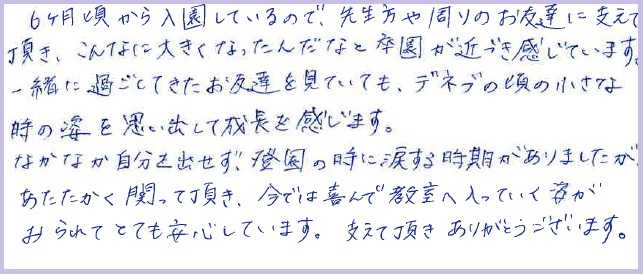 6ヶ月頃から入園しているので、先生方や周りのお友達に支えて
頂き、こんなに大きくなったんだなと卒園が近づき感じています。
一緒に過ごしてきたお友達を見ていても、デネブの頃の小さな
時の姿を思い出して成長を感じます。
なかなか自分を出せず、登園の時に涙する時期がありましたが、
あたたかく関って頂き、今では喜んで教室へ入っていく姿が
みられてとても安心しています。支えて頂きありがとうございます。